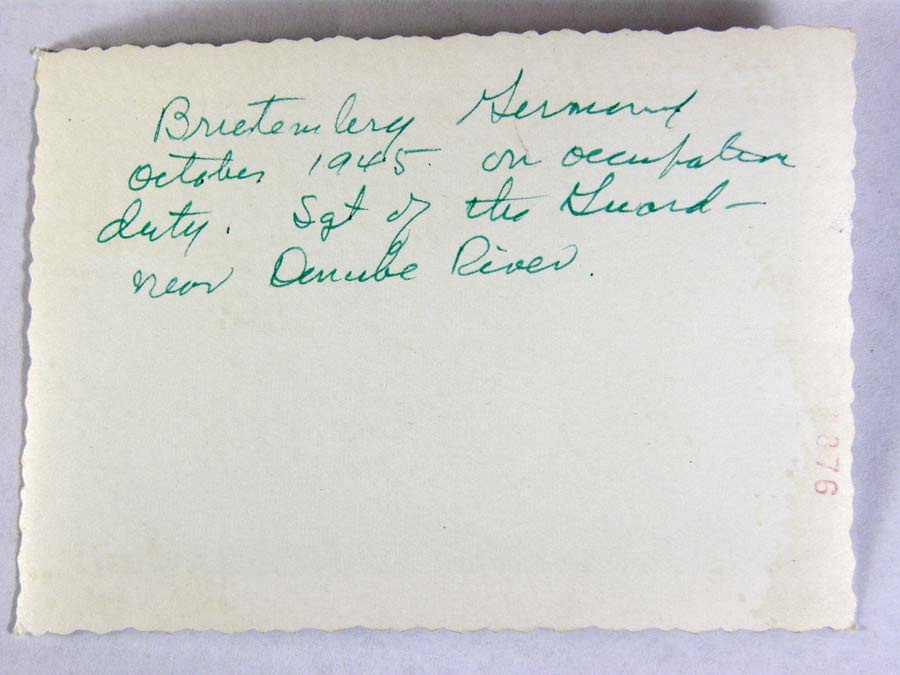 Brietenberg Germany
October 1945. on occupation
duty. Sgt of the Guard-
near Danube River.
876